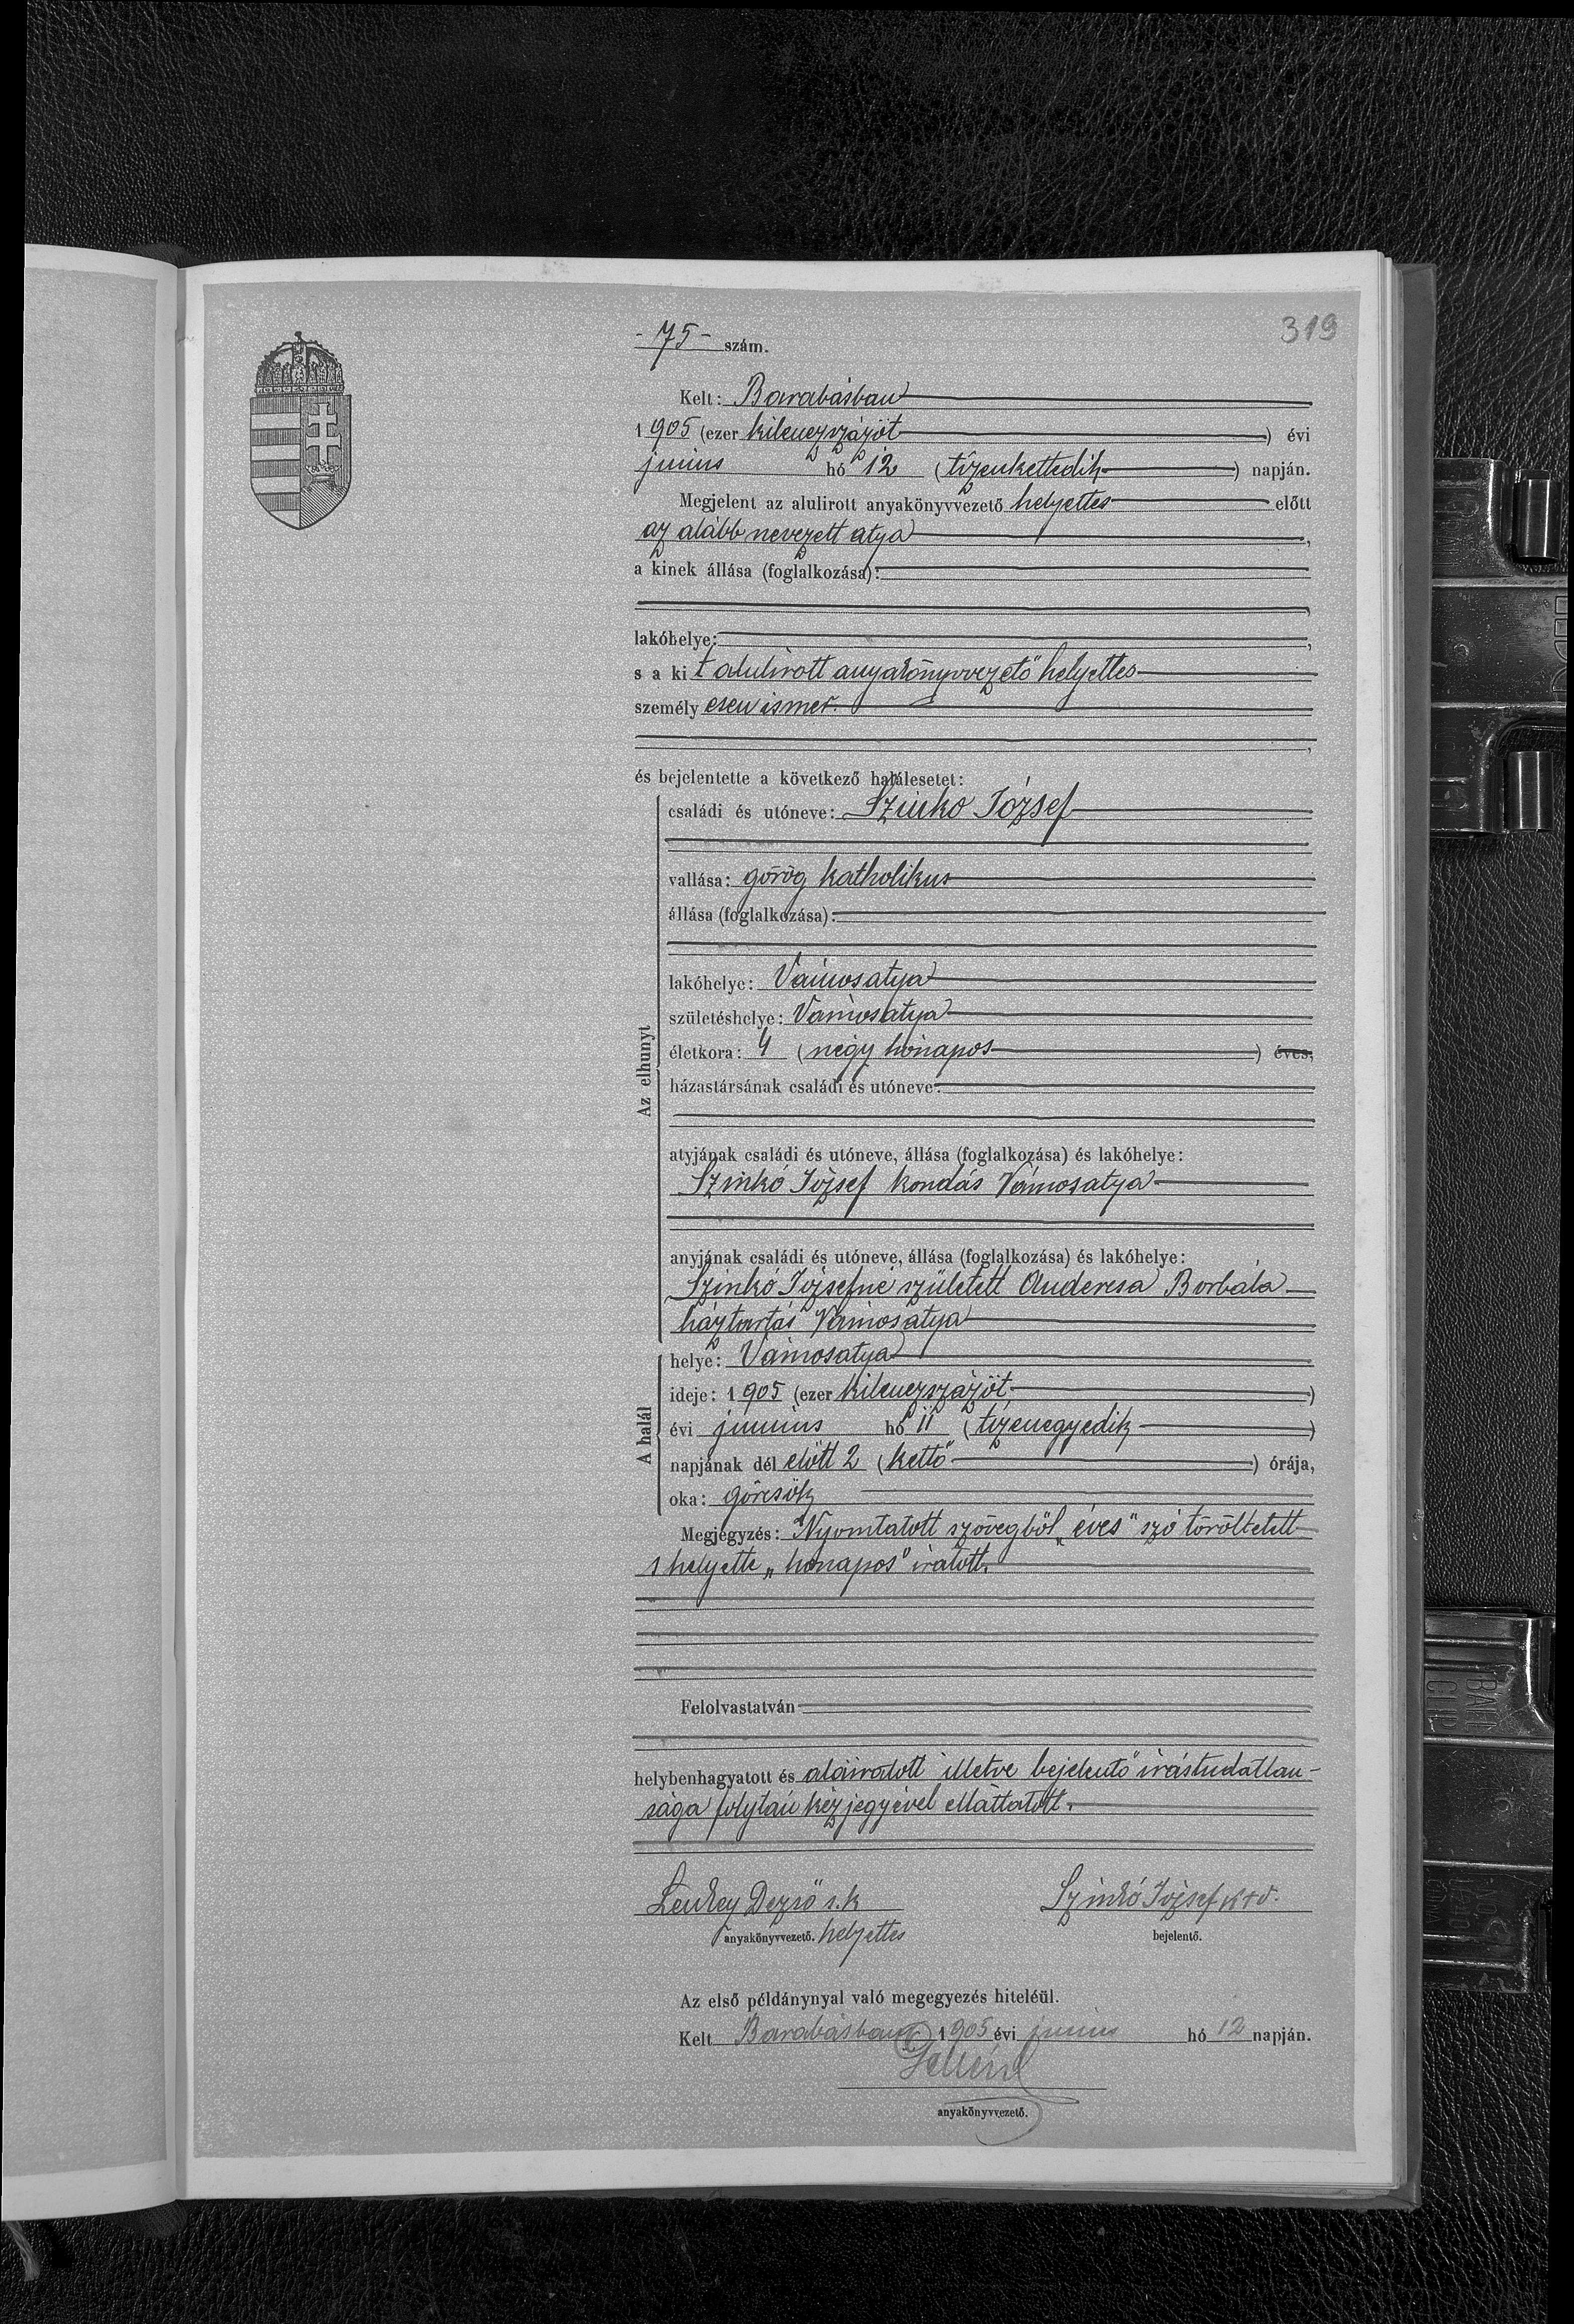 319
- 75 - szám.
Kelt: Barabásban
1905 (ezer kilenczszázöt) évi
junius hó 12 (tizenkettedik) napján.
Megjelent az alulirott anyakönyvvezető helyettes előtt
az alább nevezett atya,
a kinek állása (foglalkozása):
lakóhelye:
s a ki t alulirott anyakönyvvezető helyettes
személy esen ismer.
és bejelentette a következő halálesetet:
családi és utóneve: Szinko József
vallása: görög katholikus
állása (foglalkozása):
lakóhelye: Vámosatya
születéshelye: Vámosatya
életkora: 4 (négy hónapos) éves,
házastársának családi és utóneve:
atyjának családi és utóneve, állása (foglalkozása) és lakóhelye:
Szinkó József kondás Vámosatya
anyjának családi és utóneve, állása (foglalkozása) és lakóhelye:
Szinkó Józsefné született Anderesa Borbála
háztartás Vámosatya
Az elhunyt
helye: Vámosatya
ideje: 1905 (ezer kilenczszázöt)
évi junius hó 11 (tizenegyedik)
napjának dél előtt 2 (kettő) órája,
oka: görcsök
A halál
Megjegyzés: Nyomtatott szövegből „éves" szó töröltetett
s helyette „hónapos" iratott.
Felolvastatván
helybenhagyatott és aláiratott illetve bejelentő irástudatlan-
sága folytán kézjegyével elláttatott.
Dezső s.k Szinkó József
anyakönyvvezető. helyettes bejelentő.
Az első példánynyal való megegyezés hiteléül.
Kelt Barabásban 1905 évi junius hó 12 napján.
anyakönyvvezető.